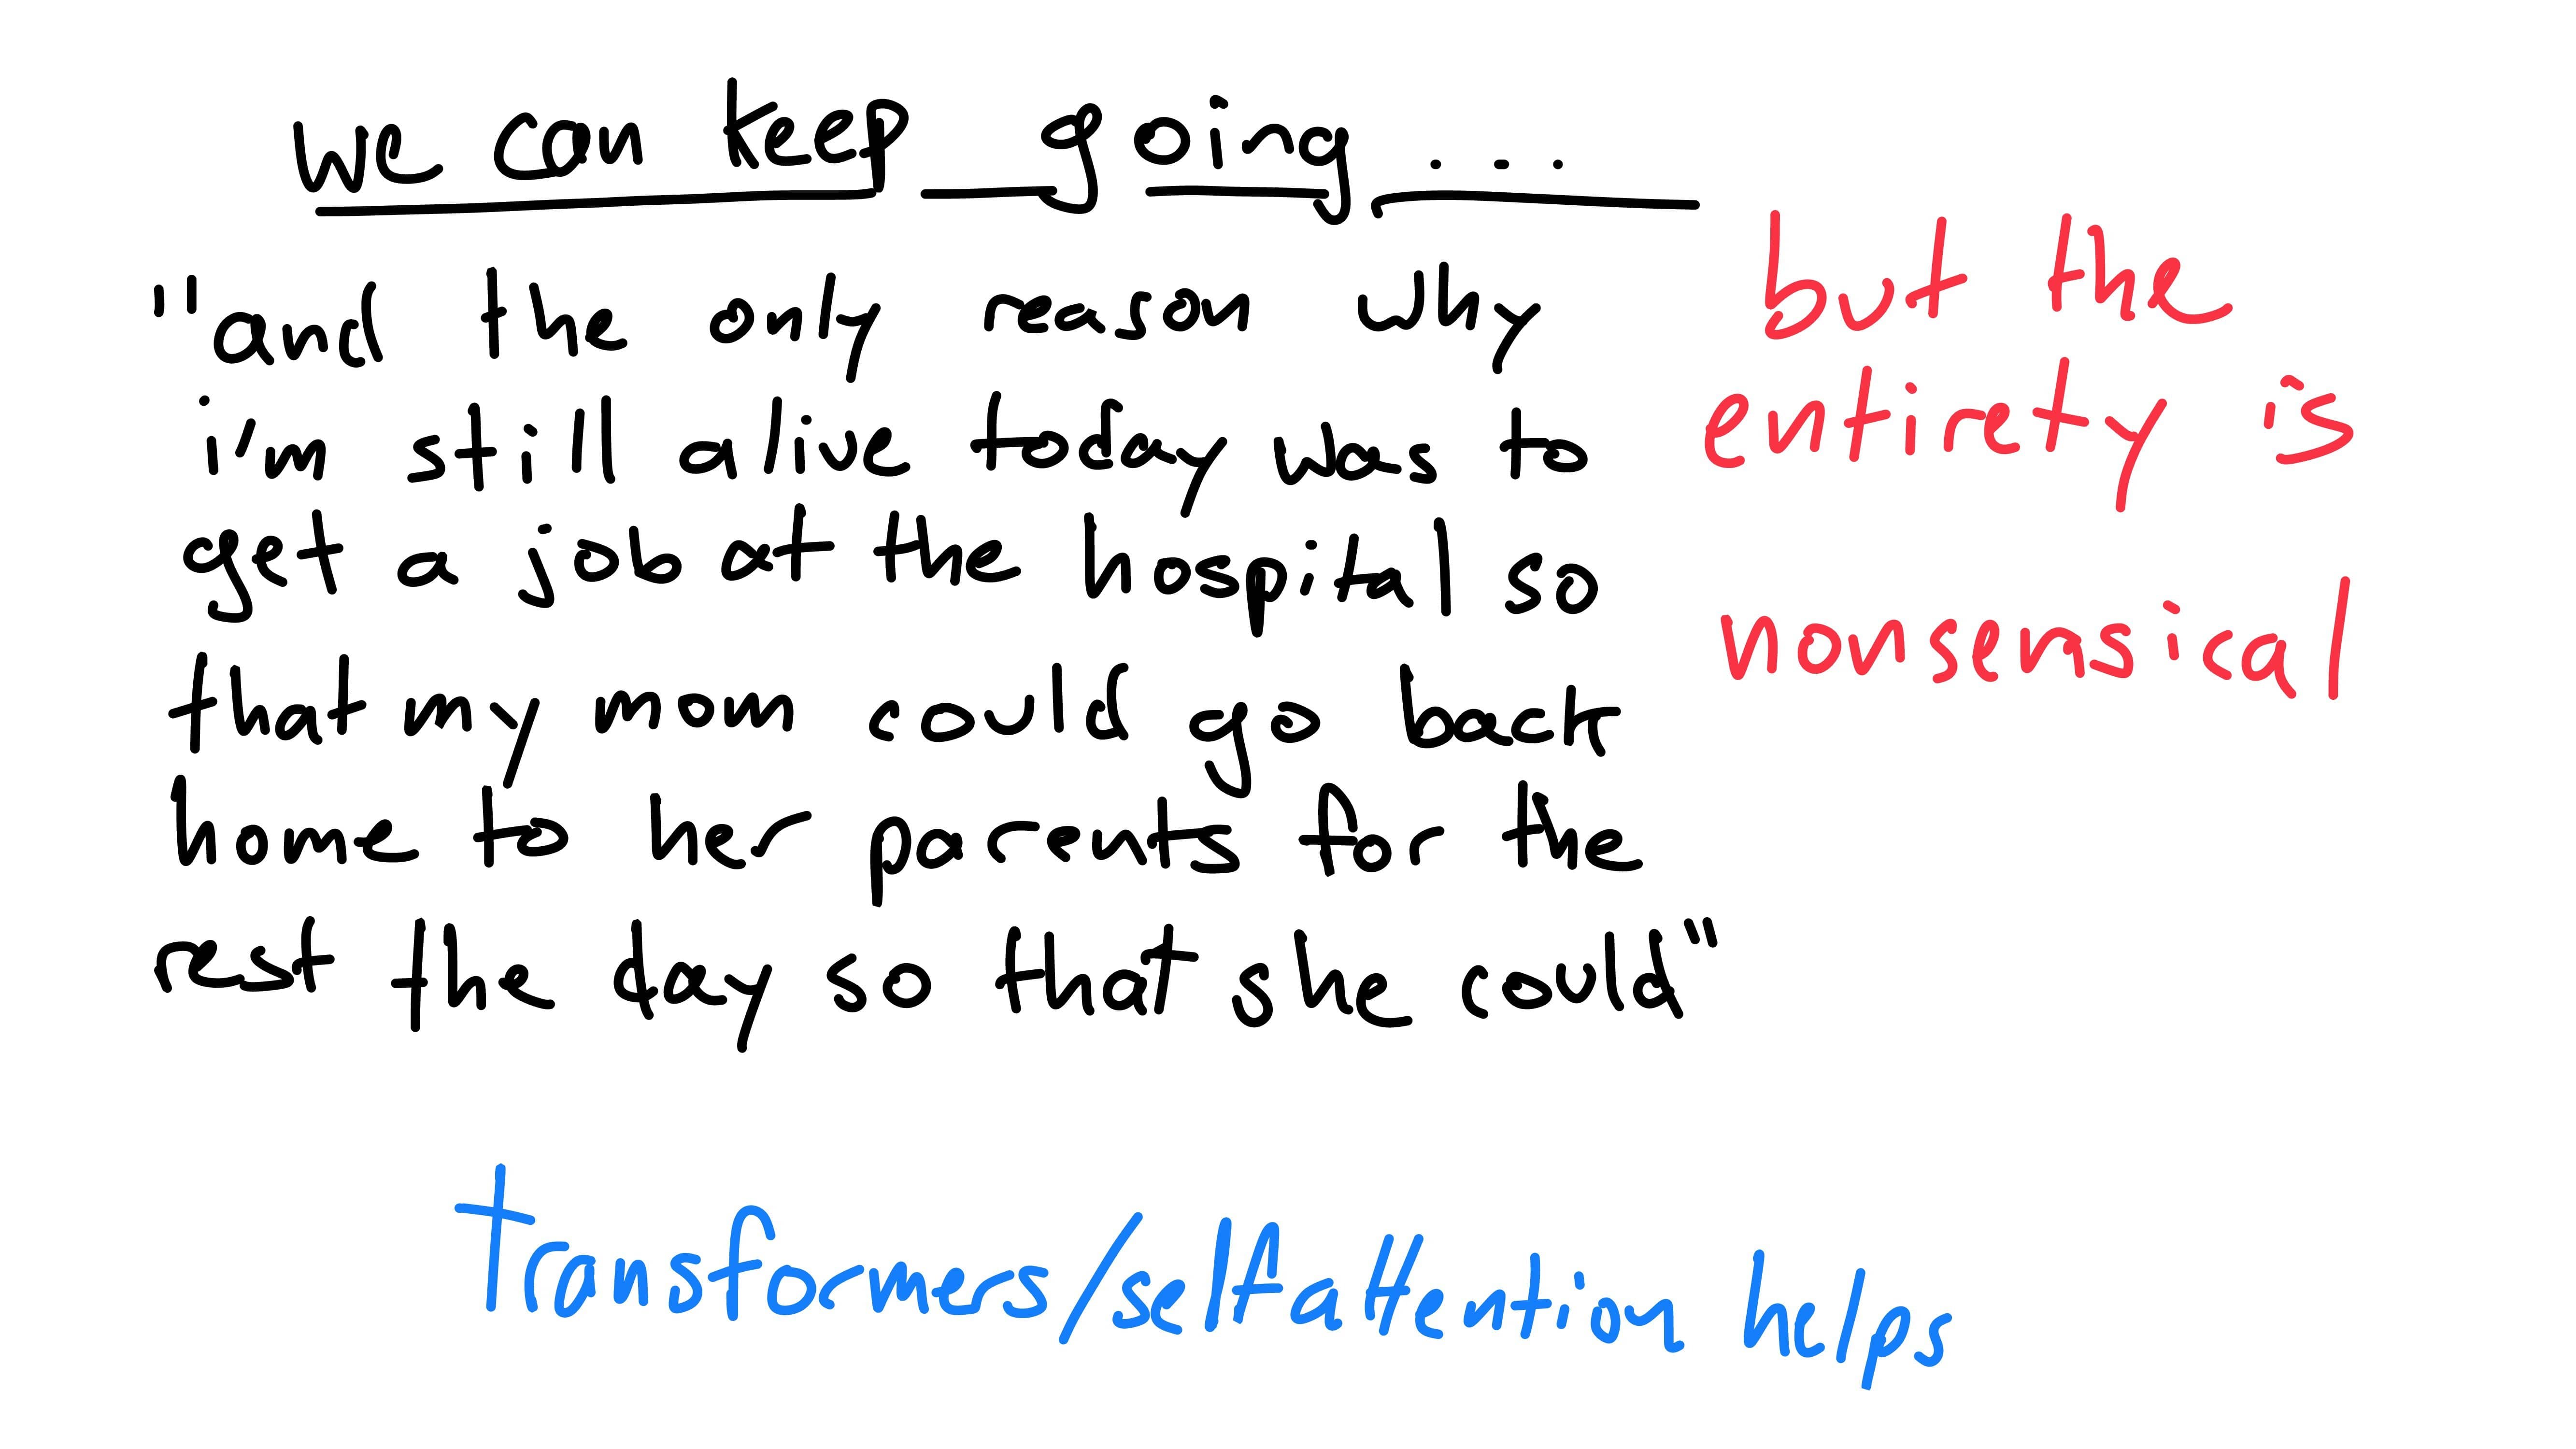 we can keep going...
"and the only reason why
i'm still alive today was to
get a job at the hospital so
that my mom could go back
home to her parents for the
rest the day so that she could"
but the
entirety is
nonsensical
Transformers/selfattention helps